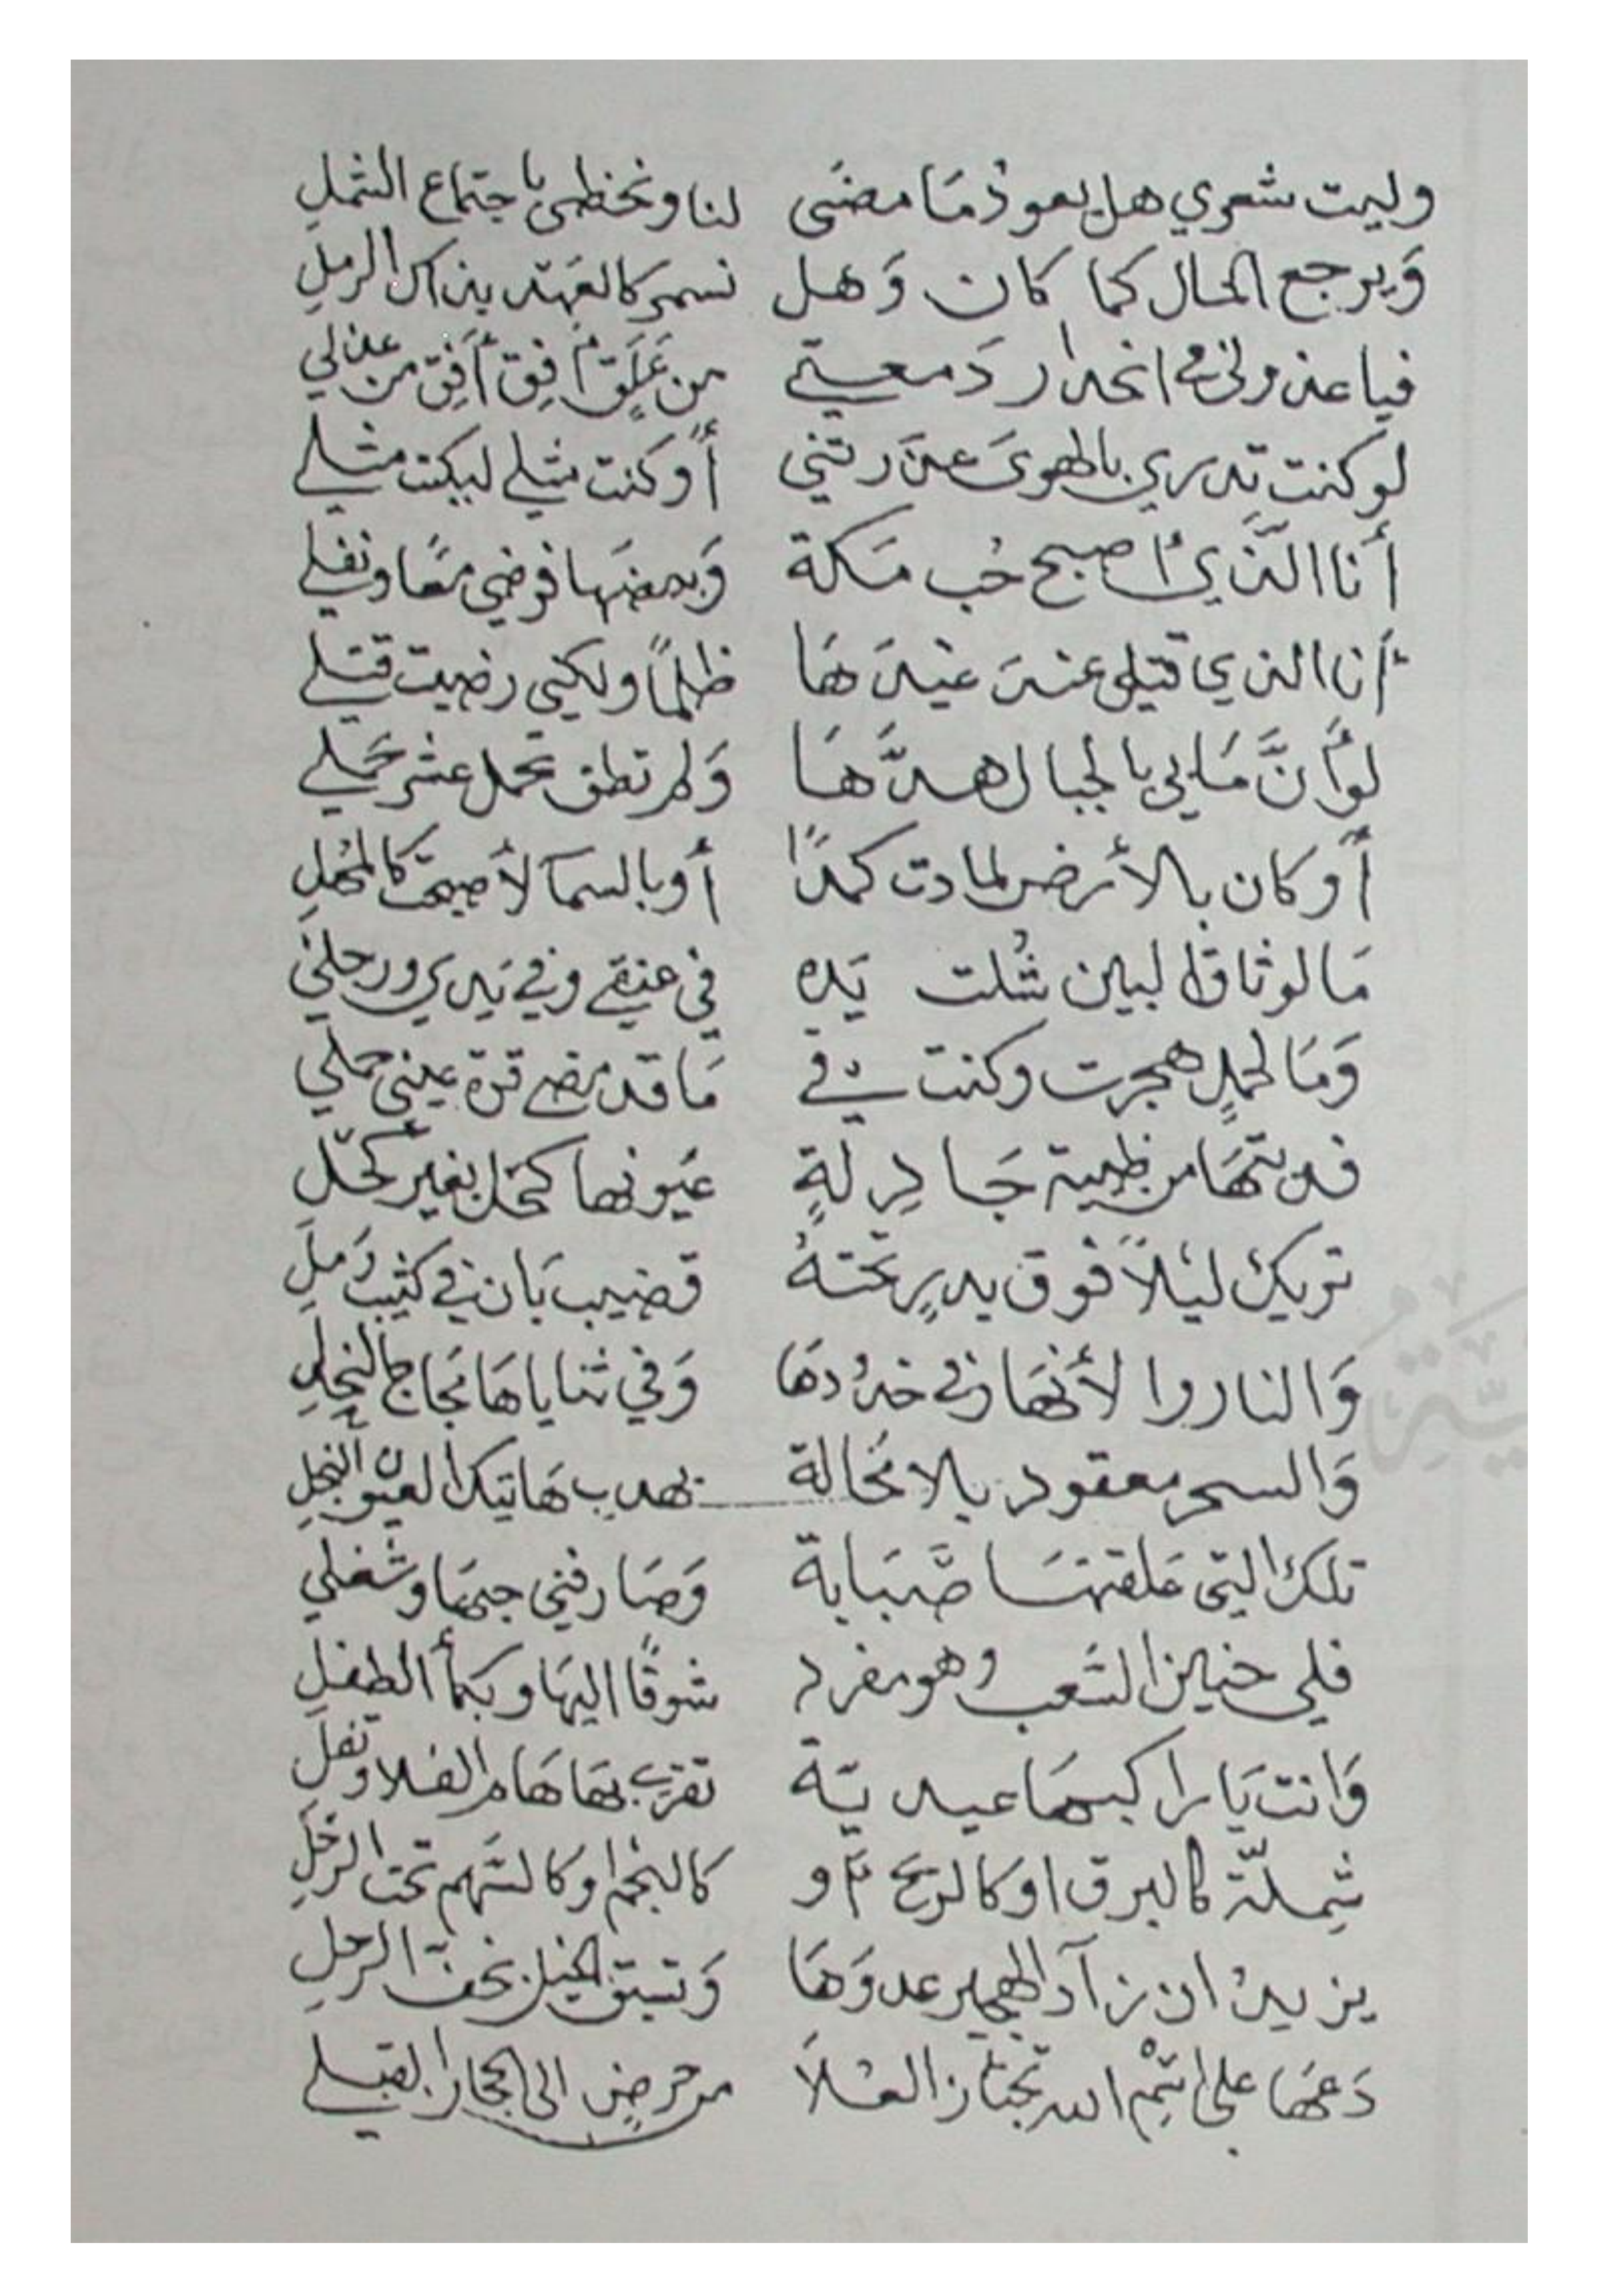 وليت شعري هل يعود مَا مضَى لنا ونحظى باجتماع الشملِ
وَيرجع الحال كما كان وَهل نسمر كالعهد بذاك الرملِ
فيا عذولي في انحدار دَمعتي من عَلَقٍ أفِق أفِق من عذلي
لو كنت تدري بالهوىَ عذَرتني أو كنت مثلي لبكيت مثلي
أنا الَّذي أصبح حُب مَكة وَبعضها فرضي معًا ونفلي
أنا الذي قتلي عندَ غيدَهَا ظلمًا ولكني رضيت قتلي
لو أنَّ مَا بي بالجبال هدَّهَا وَلم تطق تحمل عشر حَملي
أو كان بالأرض لمادت كمدًا أو بالسمآ لأصبحت كالمُهلِ
مَا لوثاق البين شُلت يَده في عنقي وفي يَدي ورجلي
وَمَا لجملٍ هجرت وكنت في مَا قد مضى قرة عيني جملي
فديتهَا من ظبية جَادِلَةٍ عيَونها كحل بغير كُحل
تريك ليَلاً فوق بدرٍ تحتهُ قضيب بَان في كثيب رَملِ
وَالنار والأنهَار في خدُودهَا وَفي ثناياهَا مُجاج النحلِ
وَالسحر معقود بلا مُحالة بهدب هَاتيك العيون النجلِ
تلك التي عَلقتهَا صَبَابة وَصَار فني حبهَا وشغلي
فلي حنين الشَعب وهو مفرد شوقًا اليهَا وبكأ الطفلِ
وَانت يَا راكبهَا عيديَة تفري بهَا هَام الفلا وتفلي
شِملّة كالبرق او كالريح أو كالنجم او كالسَهم تحت الرَحلِ
يزيدُ ان زآد الهجير عدوَهَا وَتسبق الخيل بخف الرحلِ
دَعهَا على اسْم الله تجتاز الفلاَ من حرضٍ الى الحجاز القبلي